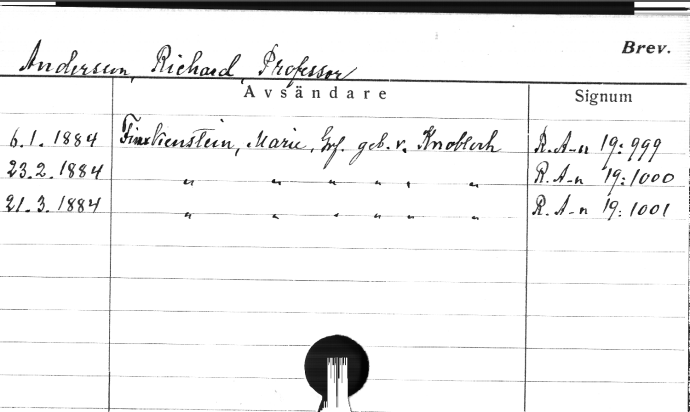 Brev.
Andersson, Richard, Professor
Avsändare Signum
6.1.1884 Finckenstein, Marie, Grf. geb. v. Knobloch R.A-n 19:999
23.2.1884 " " " " " " R.A-n 19:1000
21.3.1884 " " " " " " R.A-n 19:1001